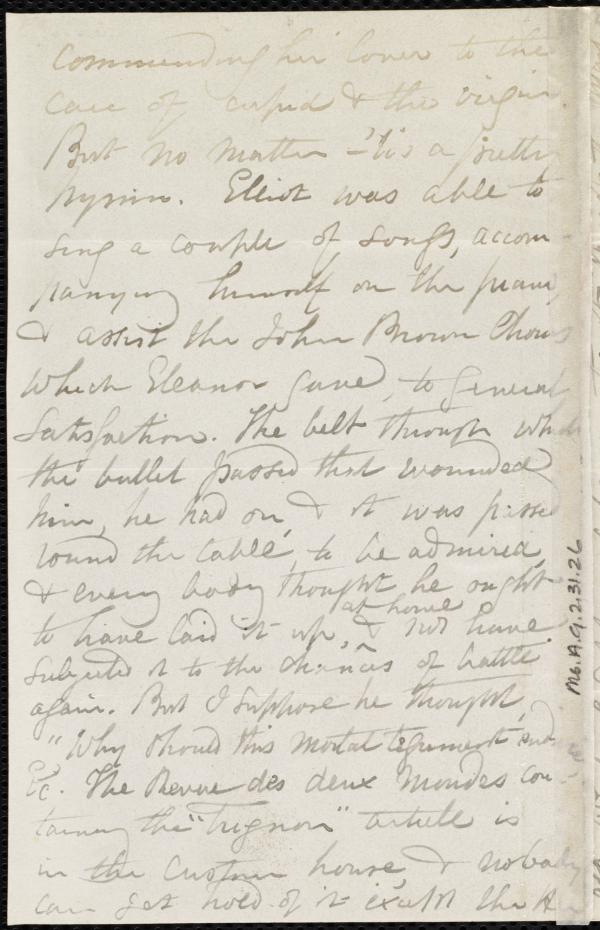 commending her lover to the
care of cupid & the virgin.
But no matter - 'tis a pretty
hymn. Elliot was able to
sing a couple of songs, accom-
panying himself on the piano,
& assist the John Brown Chorus
which Eleanor gave, to general
satisfaction. The belt through which
the bullet passed that wounded
him, he had on, & it was passed
round the table, to be admired,
& every body thought he ought
to have laid it up, at home & not have
subjected it to the chances of battle
again. But I suppose he thought,
"Why should this mortal tegument
&c. The Revue des deux Mondes con-
taining the "Trignon" article is
in the Custom house & nobody
can get hold of it except the
Ms.A.9.2.31.26